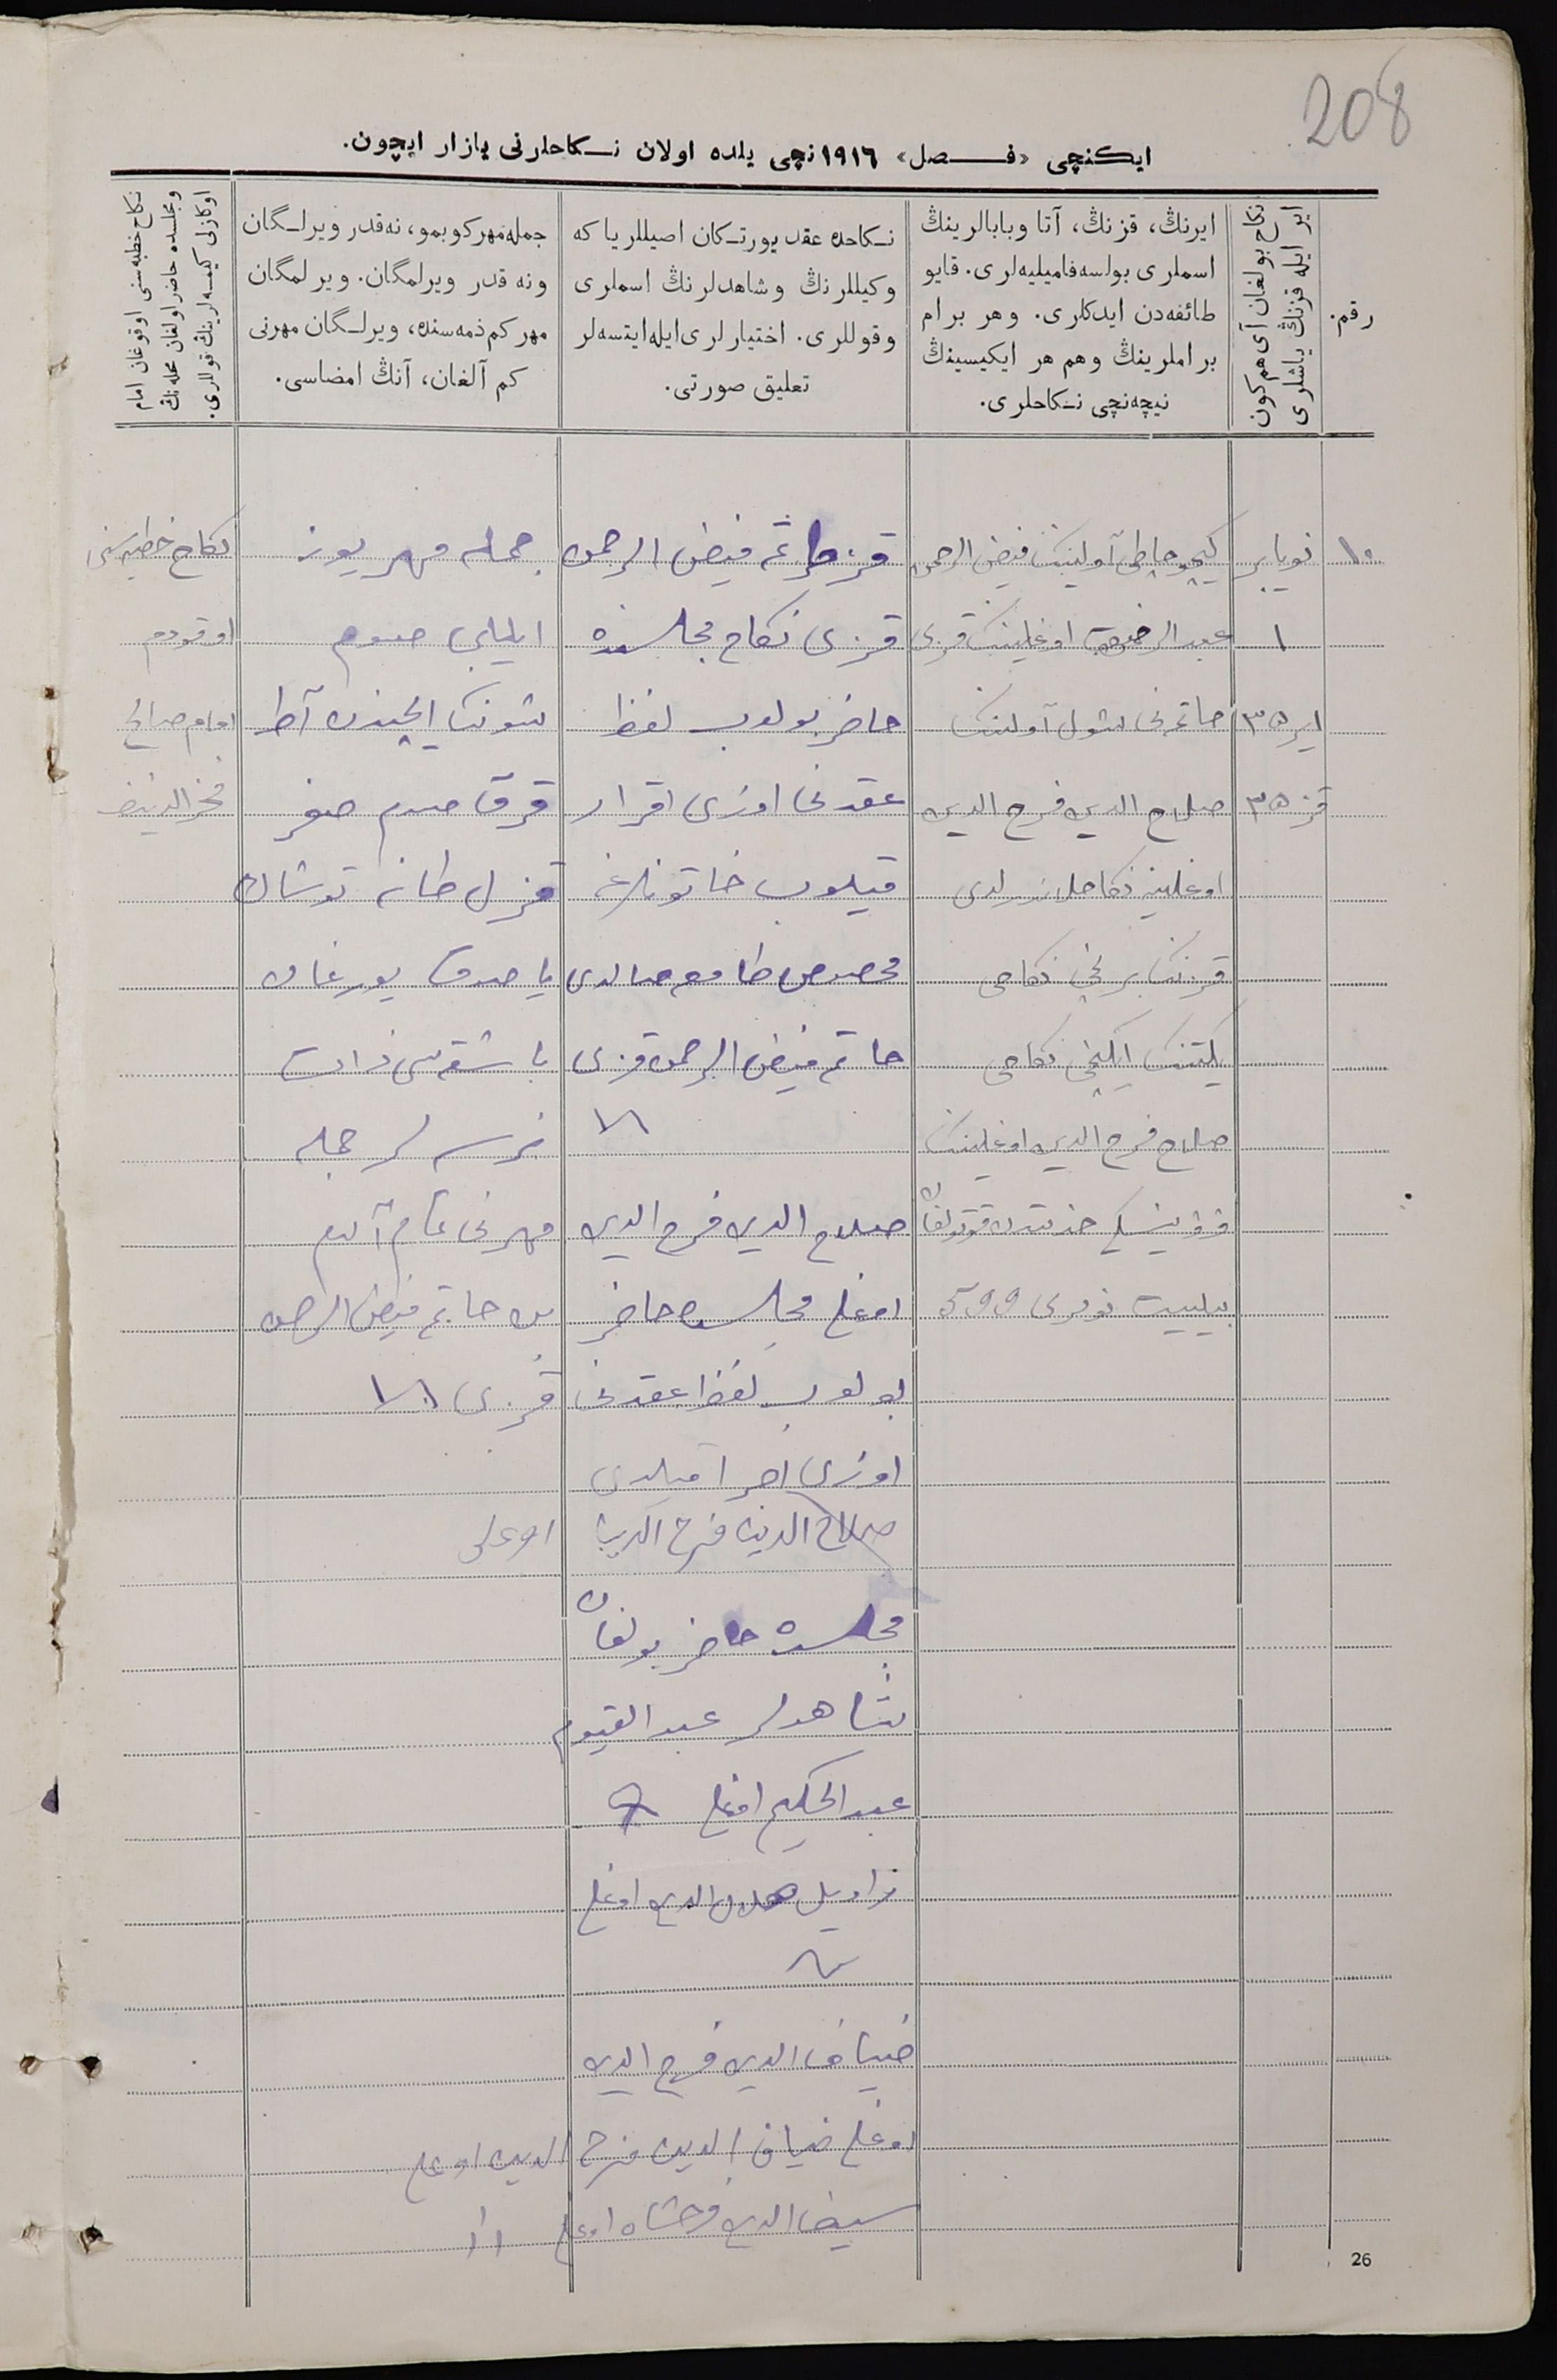 208
ایکنچی «فصل» ۱۹۱٦ نچی یلده اولان نکاحلرنی یازار ایچون.
رقم.
نکاح بولغان آی هم کون
ایر ایله قزنڭ یاشلری
ایرنڭ، قزنڭ، آتا وبابالرینڭ
اسملری بولسه فامیلیه‌لری. قایو
طائفه‌دن ایدکلری. وهر برام
براملرینڭ وهم هر ایکیسینڭ
نیچه‌نچی نکاحلری.
نکاحده عقد یورتکان اصیللر یا که
وکیللرنڭ وشاهدلرنڭ اسملری
وقوللری. اختیارلری ایله ایتسه‌لر
تعلیق صورتی.
جمله مهر کوبمو، نه قدر ویرلگان
ونه قدر ویرلمگان. ویرلمگان
مهر کم ذمه‌سنده، ویرلگان مهرنی
کم آلغان، آنڭ امضاسی.
نکاح خطبه‌سنی اوقوغان امام
ومجلسده حاضر اولغان محله‌نڭ
اوکازلی کیمسه‌لرینڭ قوللری.
۱۰
نویابر
۱
ایر ۳۵
قز ۳۵
آولینک فیض الرحمن
عبد الرحمن اوغلینک قزی
حاتمه‌نی شول آولنک
صلاح الدین فرح الدین
اوغلینه نکاحلاندرلدی
قزنک برنچی نکاحی
یکتنک ایکنچی نکاحی
صلاح فرح الدین اوغلینک
بیلیت نومری ۵۹۹
قز حاتمه فیض الرحمن
قزی نکاح مجلسنده
حاضر بولوب لفظ
عقدنی اوزی اقرار
قیلوب خاتونلرغه
مخصوص طامغه صالدی
حاتمه فیض الرحمن قزی
صلاح الدین فرح الدین
اوغلی مجلسده حاضر
بولوب لفظ عقدنی
اوزی اجرا قیلدی
صلاح الدین فرح الدین اوغلی
مجلسده حاضر بولغان
شاهدلر عبد القیوم
عبد الحکیم اوغلی
اوغلی
ضیاف الدین فرح الدین
اوغلی ضیاف الدین فرح الدین اوغلی
اوغلی
جمله مهر یوز
ایللی صوم
شونک ایچنده آط
قرق صوم صغر
قزل طانه توشاک
یاصدق یورغان
باشقه‌سی
نرسه‌لر جمله
مهرنی تمام آلدم
من حاتمه فیض الرحمن
قزی
نکاح خطبه‌سنی
اوقودم
امام
26